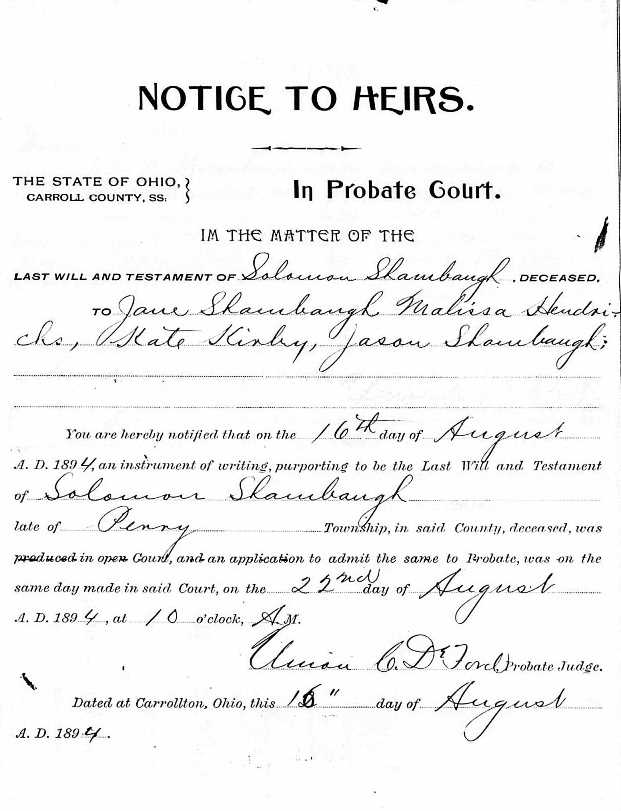 NOTICE TO HEIRS.
THE STATE OF OHIO, } In Probate Court.
CARROLL COUNTY, SS: }
IM THE MATTER OF THE
LAST WILL AND TESTAMENT OF Solomon Shambaugh, DECEASED.
TO Jane Shambaugh Malissa Hendri-
cks, Kate Kirby, Jason Shambaugh;
You are hereby notified that on the 16th day of August
A. D. 1894, an instrument of writing, purporting to be the Last Will and Testament
of Solomon Shambaugh
late of Penny Township, in said County, deceased, was
produced in open Court, and an application to admit the same to Probate, was on the
same day made in said Court, on the 22nd day of August
A. D. 1894, at 10 o'clock, A.M.
Union C. DeFord Probate Judge.
Dated at Carrollton, Ohio, this 16" day of August
A. D. 1894.